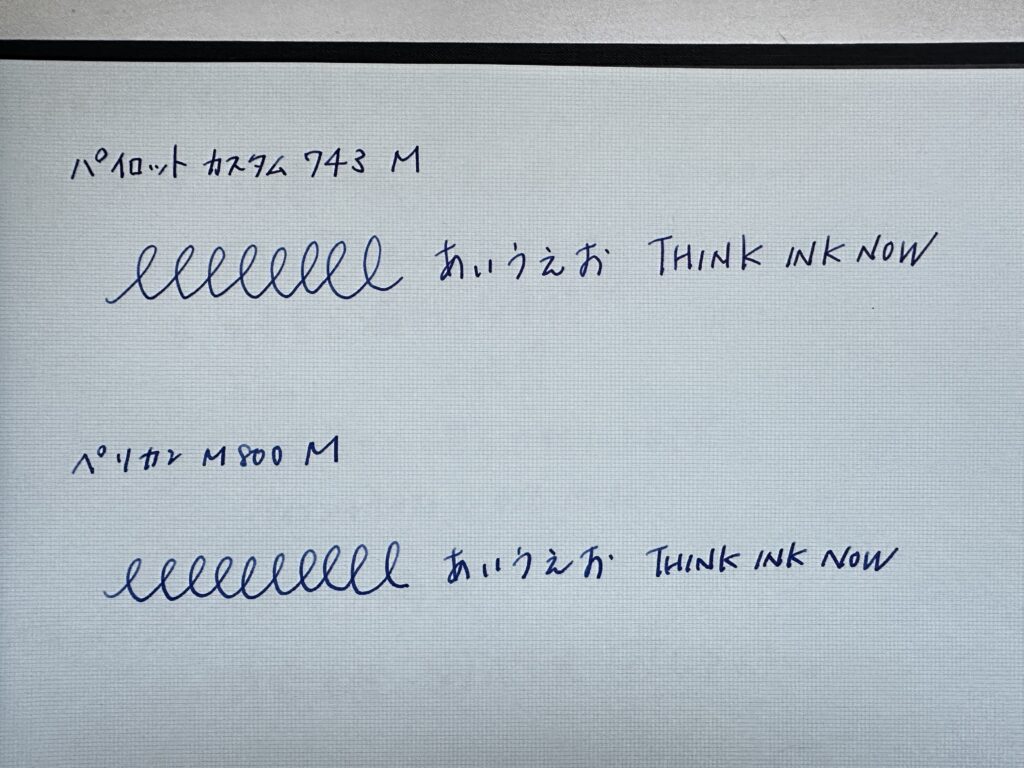 パイロット カスタム 743 M
あいうえお THINK INK NOW
ペリカン M800 M
あいうえお THINK INK NOW